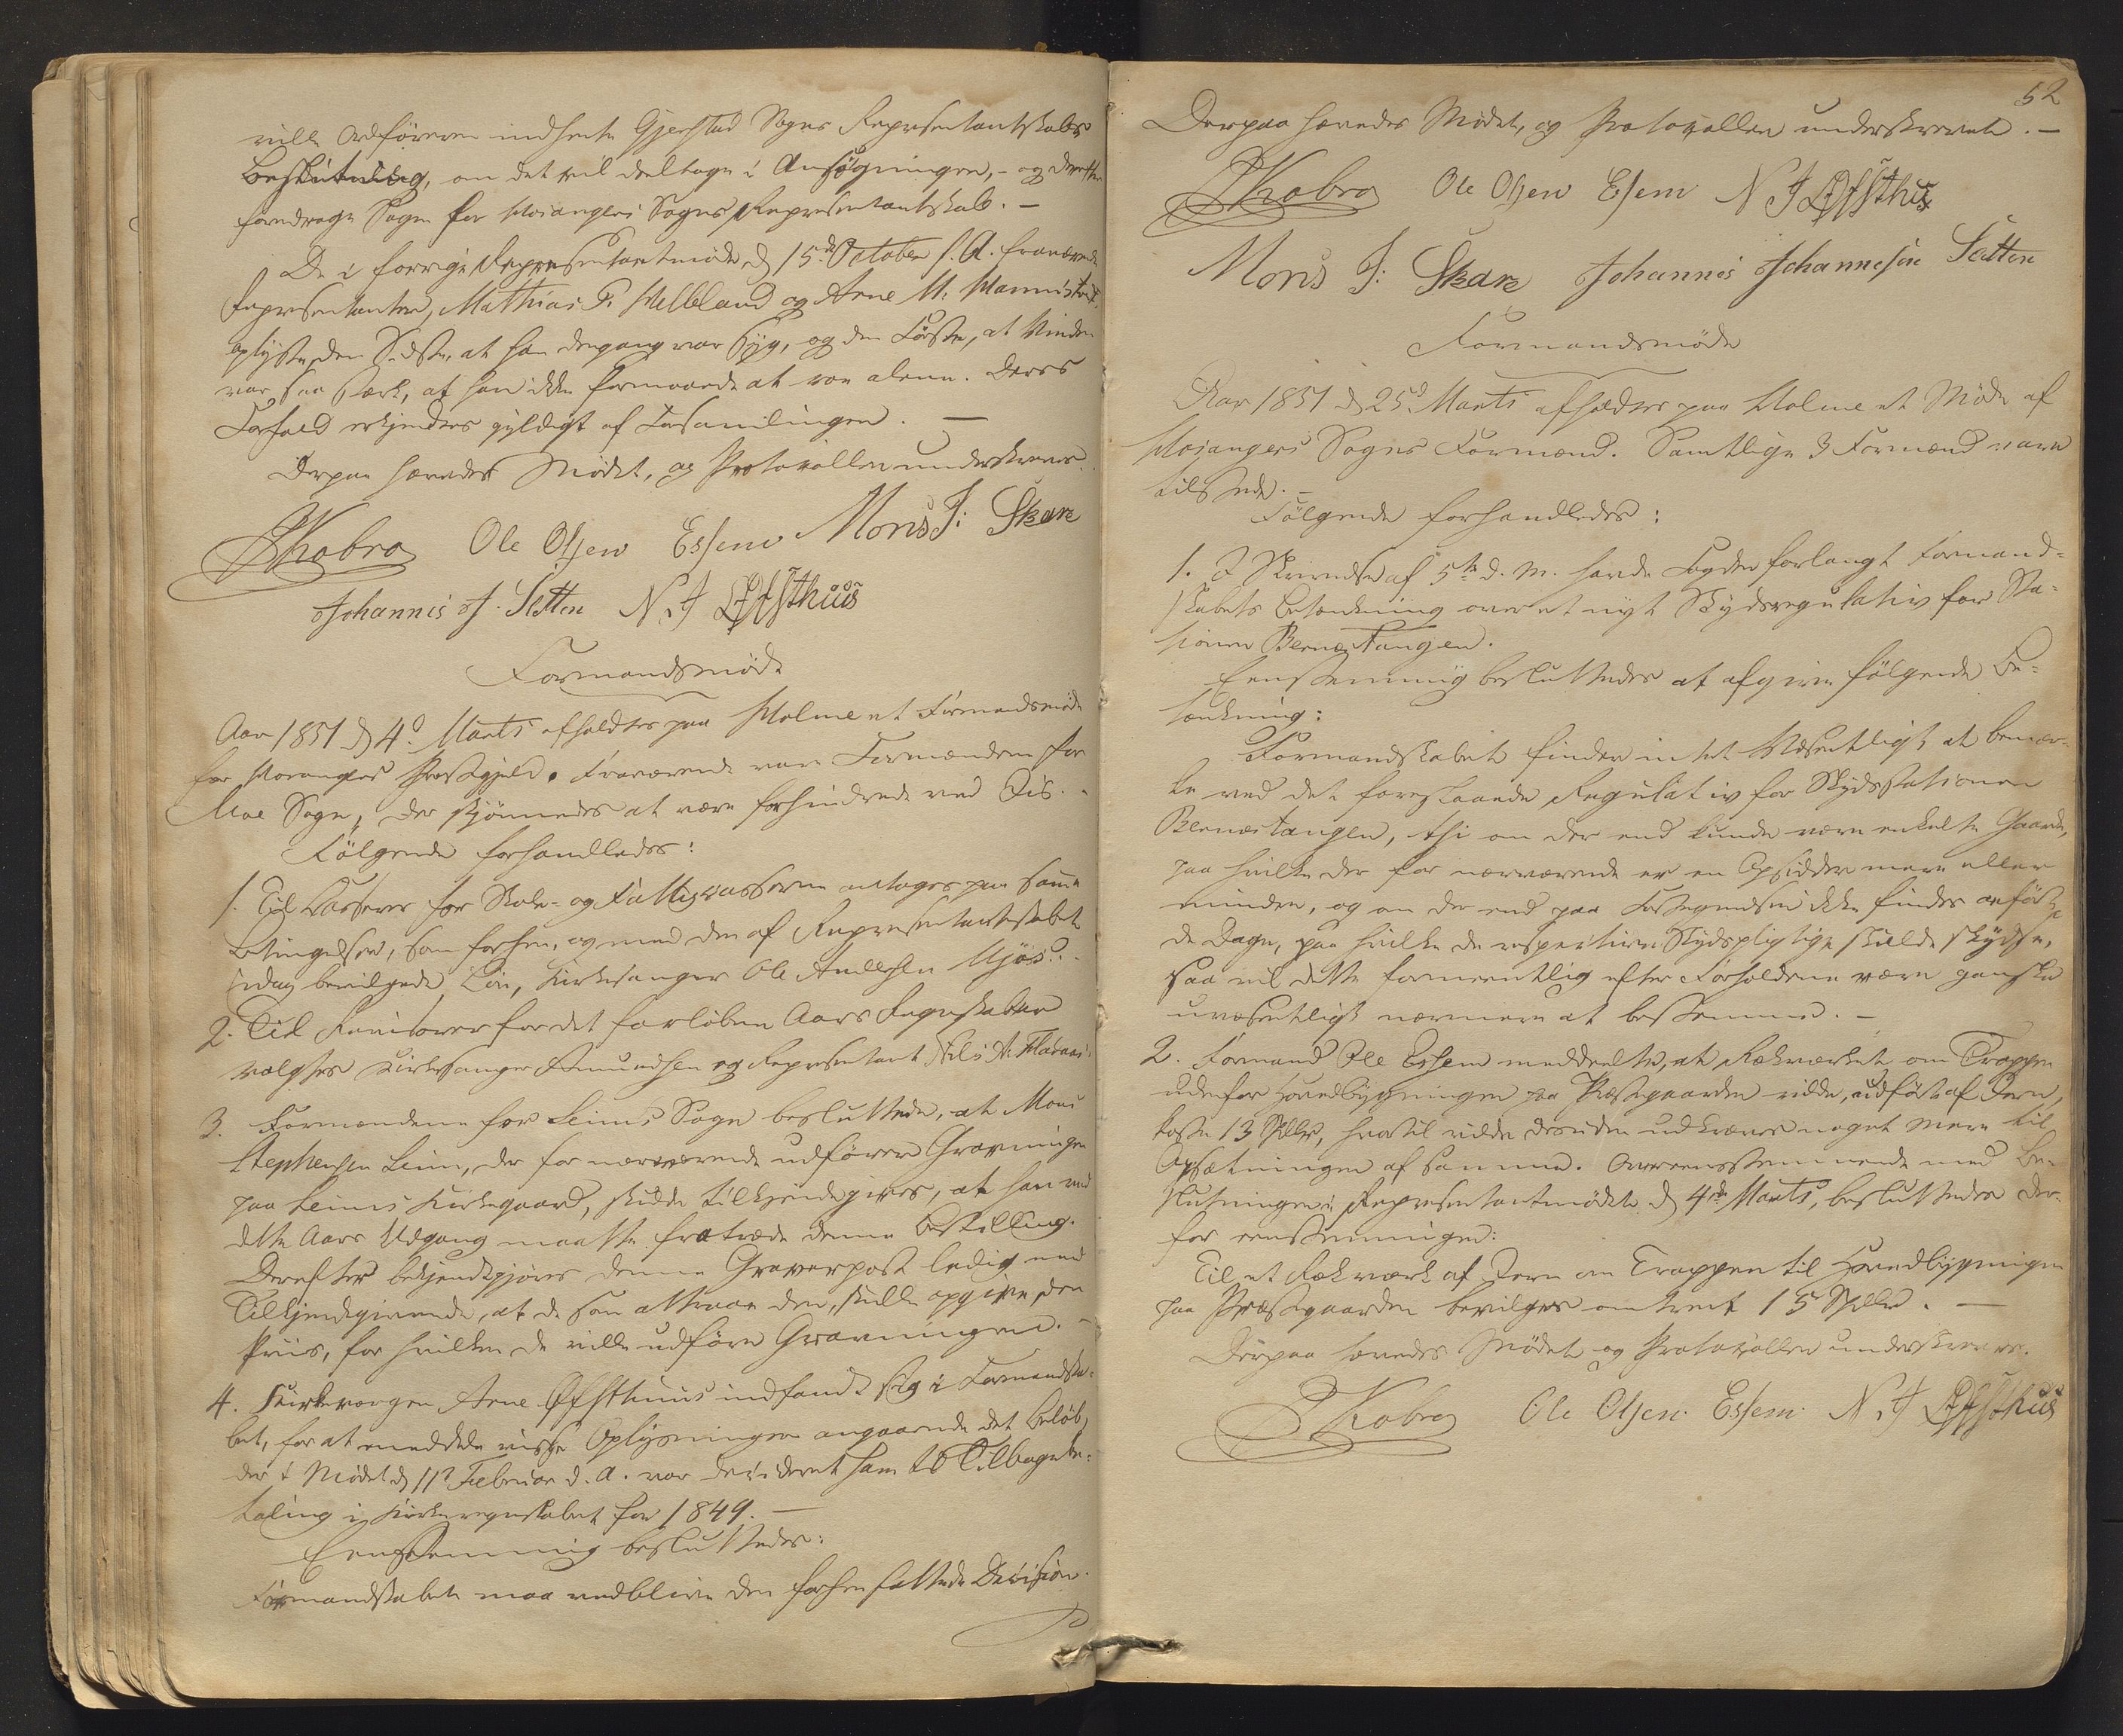 vilde Ordføreren indhente Gjerstad Sogns Repræsentantskabs
Beslutning, om det vil deeltage i Ansøgningen, – og derefter
foredrage Sagen for Hosangers Sogns Repræsentantskab. –
De i forrige Repræsentantmøde d 15de October f. A. fraværende
Repræsentanter, Mathias P. Helleland og Arne M. Mannistræt,
oplyste, den Sidste, at han dengang var syg, og den Første, at Vinden
var saa stærk, at han ikke formaaede at roe alene. Deres
Forfald erkjendtes gyldigt af Forsamlingen. –
Derpaa hævedes Mødet, og Protokollen underskreves.
JKobro Ole Olsen Essem Mons J: Skare
Johannis J. Sletten N. J Øfsthuus
Formandsmøde
Aar 1851 d 4d Marts afholdtes paa Holme et Formandsmøde
for Hosangers Præstegjeld. Fraværende vare Formændene for
Moe Sogn, der skjønnedes at være forhindrede ved Iis. –
Følgende forhandledes:
1. Til Kasserer for Skole- og Fattigkasserne antoges paa samme
Betingelser, som forhen, og med den af Repræsentantskabet
idag bevilgede Løn, Kirkesanger Ole Amundsen Mjøs.
2. Til Revisorer for det forløbne Aars Regnskaber
valgtes Kirkesanger Amundsen og Repræsentant Nils N. Fladaas.
3. Formændene for Leims Sogn besluttede, at Mons
Stephensen Leim, der for nærværende udfører Gravningen
paa Leims Kirkegaard, skulde tilkjendegives, at han ved
dette Aars Udgang maatte fratræde denne Bestilling.
Derefter bekjendtgjøres denne Graverpost ledig med
Tilkjendegivende, at de som attraae den, skulle opgive den
Priis, for hvilken de ville udføre Gravningen. –
4. Kirkeværgen Arne Øfsthuus indfandt sig i Formandska-
bet, for at meddele visse Oplysninger angaaende det Beløb,
der i Mødet d 11d Februar d. A. var decideret ham til Tilbagebe-
taling i Kirkeregnskabet for 1849. –
Eenstemmig besluttedes:
Formandskabet maa vedblive den forhen fattede Decision.
52
Derpaa hævedes Mødet, og Protokollen underskrevet. –
JKobro Ole Olsen Essem N J Øfsthus
Mons J: Skare Johannis Johannesen Sletten
Formandsmøde
Aar 1851 d 25d Marts afholdtes paa Holme et Møde af
Hosangers Sogns Formænd. Samtlige 3 Formænd vare
tilstede. –
Følgende forhandledes:
1. I Skrivelse af 5te d. M. havde Fogden forlangt Formand-
skabets Betænkning over et nyt Skydsregulativ for Sta-
tionen Bernæstangen.
Eenstemmig besluttedes at afgive følgende Be-
tænkning:
Formandskabet finder intet Væsentligt at bemær-
ke ved det foreslaaede Regulativ for Skydsstationen
Bernæstangen, thi om der end kunde være enkelte Gaarde,
paa hvilke der for nærværende er en Opsidder mere eller
mindre, og om der end paa Fortegnelsen ikke findes anført
de Dage, paa hvilke de respektive Skydspligtige skulde skydse,
saa vil dette formeentlig efter Forholdene være ganske
uvæsentligt nærmere at bestemme. –
2. Formand Ole Essem meddeelte, at Rækværket om Trappen
udenfor Hovedbygningen paa Præstegaarden vilde, udført af Jern,
koste 13 Spdlr, hvortil vilde desuden udkræves noget mere til
Opsætningen af samme. Overeensstemmende med Be-
slutningen i Repræsentantmødet d 4de Marts, besluttedes der-
for eenstemmigen:
Til et Rækværk af Jern om Trappen til Hovedbygningen
paa Præstegaarden bevilges omtrent 15 Spdlr. –
Derpaa hævedes Mødet og Protokollen underskreves.
JKobro Ole Olsen Essem N. J Øfsthus